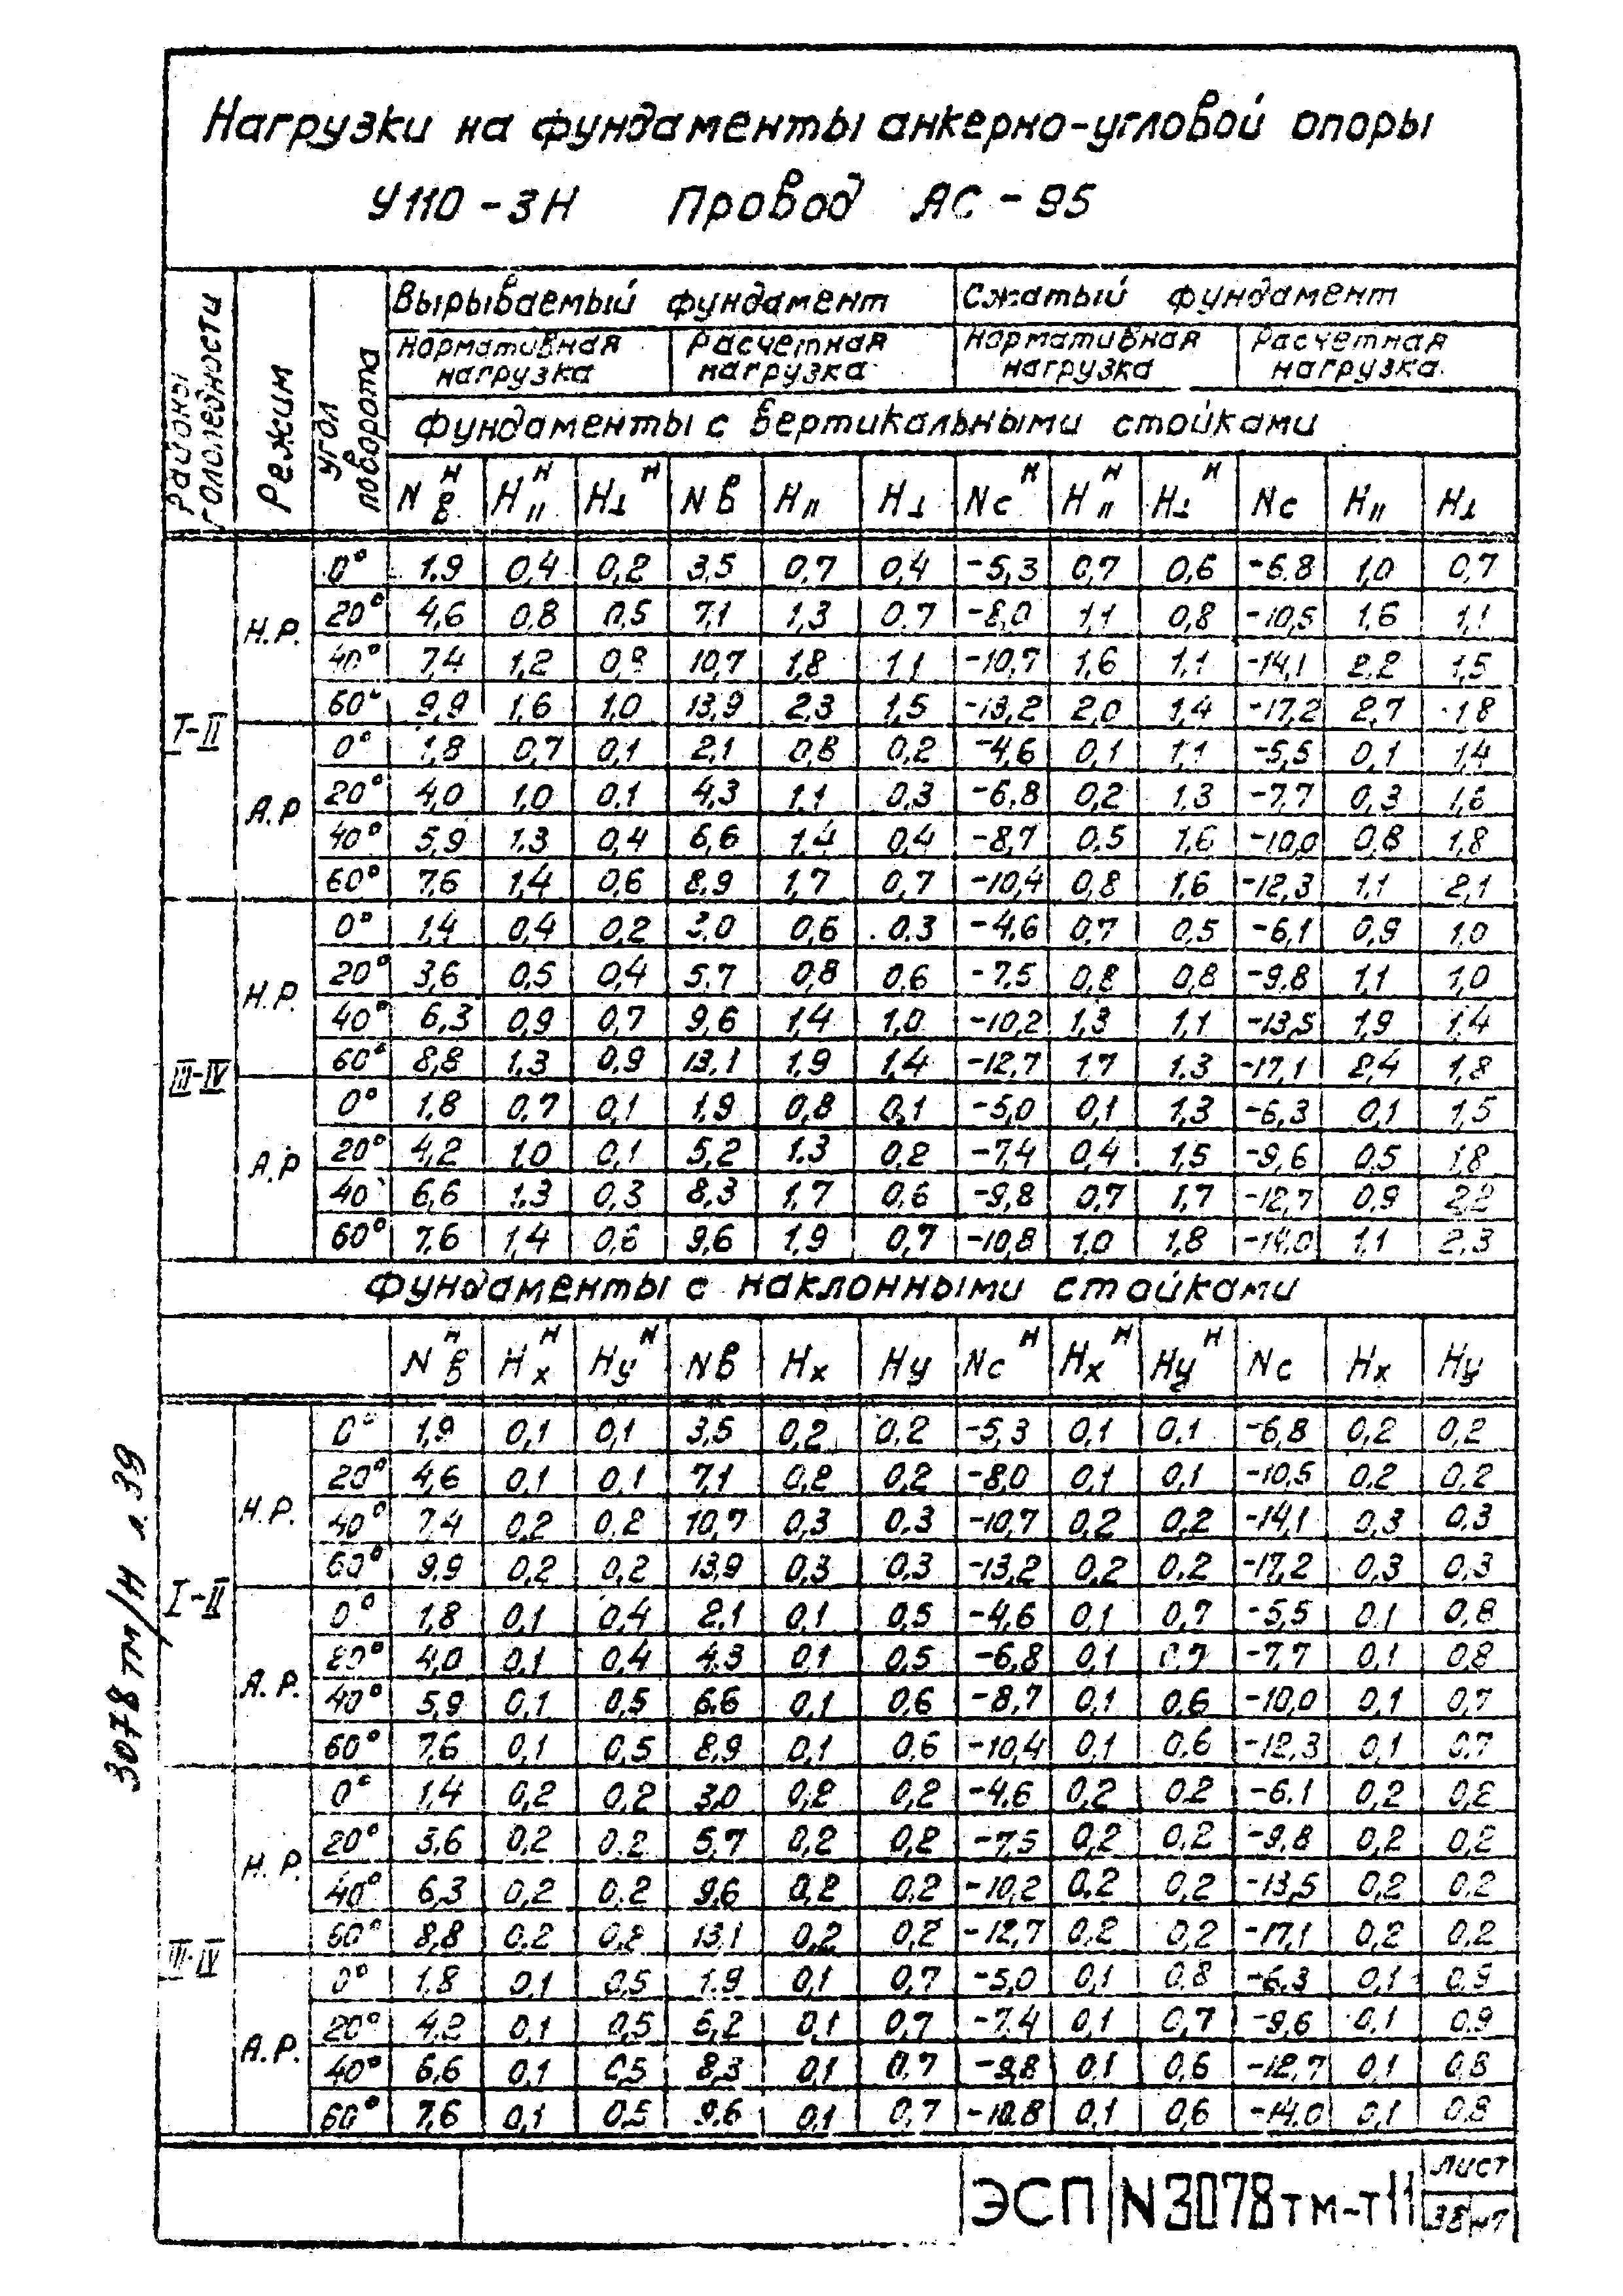 Нагрузки на фундаменты анкерно-угловой опоры
У110-3Н Провод АС-95
Районы гололедности Режим Угол поворота Вырываемый фундамент Сжатый фундамент
Нормативная нагрузка Расчетная нагрузка Нормативная нагрузка Расчетная нагрузка
Фундаменты с вертикальными стойками
Nвᴴ H॥ᴴ H⊥ᴴ Nв H॥ H⊥ Ncᴴ H॥ᴴ H⊥ᴴ Nc H॥ H⊥
I-II Н.Р. 0° 1,9 0,4 0,2 3,5 0,7 0,4 -5,3 0,7 0,6 -6,8 1,0 0,7
20° 4,6 0,8 0,5 7,1 1,3 0,7 -8,0 1,1 0,8 -10,5 1,6 1,1
40° 7,4 1,2 0,8 10,7 1,8 1,1 -10,7 1,6 1,1 -14,1 2,2 1,5
60° 9,9 1,6 1,0 13,9 2,3 1,5 -13,2 2,0 1,4 -17,2 2,7 1,8
А.Р 0° 1,8 0,7 0,1 2,1 0,8 0,2 -4,6 0,1 1,1 -5,5 0,1 1,4
20° 4,0 1,0 0,1 4,3 1,1 0,3 -6,8 0,2 1,3 -7,7 0,3 1,6
40° 5,9 1,3 0,4 6,6 1,4 0,4 -8,7 0,5 1,6 -10,0 0,8 1,8
60° 7,6 1,4 0,6 8,9 1,7 0,7 -10,4 0,8 1,6 -12,3 1,1 2,1
III-IV Н.Р. 0° 1,4 0,4 0,2 3,0 0,6 0,3 -4,6 0,7 0,5 -6,1 0,9 1,0
20° 3,6 0,5 0,4 5,7 0,8 0,6 -7,5 0,8 0,8 -9,8 1,1 1,0
40° 6,3 0,9 0,7 9,6 1,4 1,0 -10,2 1,3 1,1 -13,5 1,9 1,4
60° 8,8 1,3 0,9 13,1 1,9 1,4 -12,7 1,7 1,3 -17,1 2,4 1,8
А.Р 0° 1,8 0,7 0,1 1,9 0,8 0,1 -5,0 0,1 1,3 -6,3 0,1 1,5
20° 4,2 1,0 0,1 5,2 1,3 0,2 -7,4 0,4 1,5 -9,6 0,5 1,8
40° 6,6 1,3 0,3 8,3 1,7 0,6 -9,8 0,7 1,7 -12,7 0,9 2,2
60° 7,6 1,4 0,6 9,6 1,9 0,7 -10,8 1,0 1,8 -14,0 1,1 2,3
Фундаменты с наклонными стойками
Nвᴴ Hxᴴ Hyᴴ Nв Hx Hy Ncᴴ Hxᴴ Hyᴴ Nc Hx Hy
I-II Н.Р. 0° 1,9 0,1 0,1 3,5 0,2 0,2 -5,3 0,1 0,1 -6,8 0,2 0,2
20° 4,6 0,1 0,1 7,1 0,2 0,2 -8,0 0,1 0,1 -10,5 0,2 0,2
40° 7,4 0,2 0,2 10,7 0,3 0,3 -10,7 0,2 0,2 -14,1 0,3 0,3
60° 9,9 0,2 0,2 13,9 0,3 0,3 -13,2 0,2 0,2 -17,2 0,3 0,3
А.Р. 0° 1,8 0,1 0,4 2,1 0,1 0,5 -4,6 0,1 0,7 -5,5 0,1 0,8
20° 4,0 0,1 0,4 4,3 0,1 0,5 -6,8 0,1 0,7 -7,7 0,1 0,8
40° 5,9 0,1 0,5 6,6 0,1 0,6 -8,7 0,1 0,6 -10,0 0,1 0,7
60° 7,6 0,1 0,5 8,9 0,1 0,6 -10,4 0,1 0,6 -12,3 0,1 0,7
III-IV Н.Р. 0° 1,4 0,2 0,2 3,0 0,2 0,2 -4,6 0,2 0,2 -6,1 0,2 0,2
20° 3,6 0,2 0,2 5,7 0,2 0,2 -7,5 0,2 0,2 -9,8 0,2 0,2
40° 6,3 0,2 0,2 9,6 0,2 0,2 -10,2 0,2 0,2 -13,5 0,2 0,2
60° 8,8 0,2 0,2 13,1 0,2 0,2 -12,7 0,2 0,2 -17,1 0,2 0,2
А.Р. 0° 1,8 0,1 0,5 1,9 0,1 0,7 -5,0 0,1 0,8 -6,3 0,1 0,9
20° 4,2 0,1 0,5 6,2 0,1 0,7 -7,4 0,1 0,7 -9,6 0,1 0,9
40° 6,6 0,1 0,5 8,3 0,1 0,7 -9,8 0,1 0,6 -12,7 0,1 0,8
60° 7,6 0,1 0,5 9,6 0,1 0,7 -10,8 0,1 0,6 -14,0 0,1 0,8
3078тм/Н л.39
ЭСП N3078тм-т11 Лист